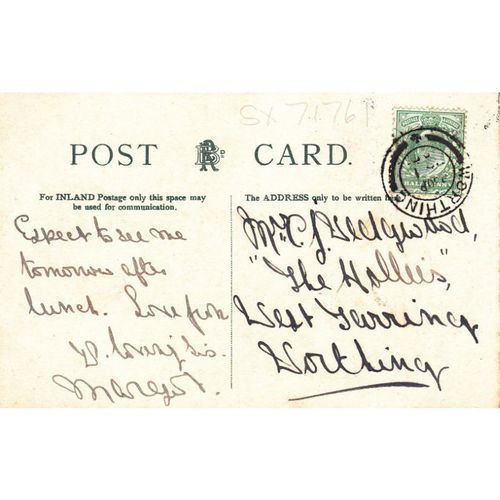 SX 7.1.761
POST CARD.
For INLAND Postage only this space may
be used for communication.
The ADDRESS only to be written here
WORTHING
HALFPENNY
Expect to see me
tomorrow after
lunch. Love from
Yr. loving Sis.
Margot.
Mr C. J. Sedgwood,
"The Hollies",
West Tarring
Worthing